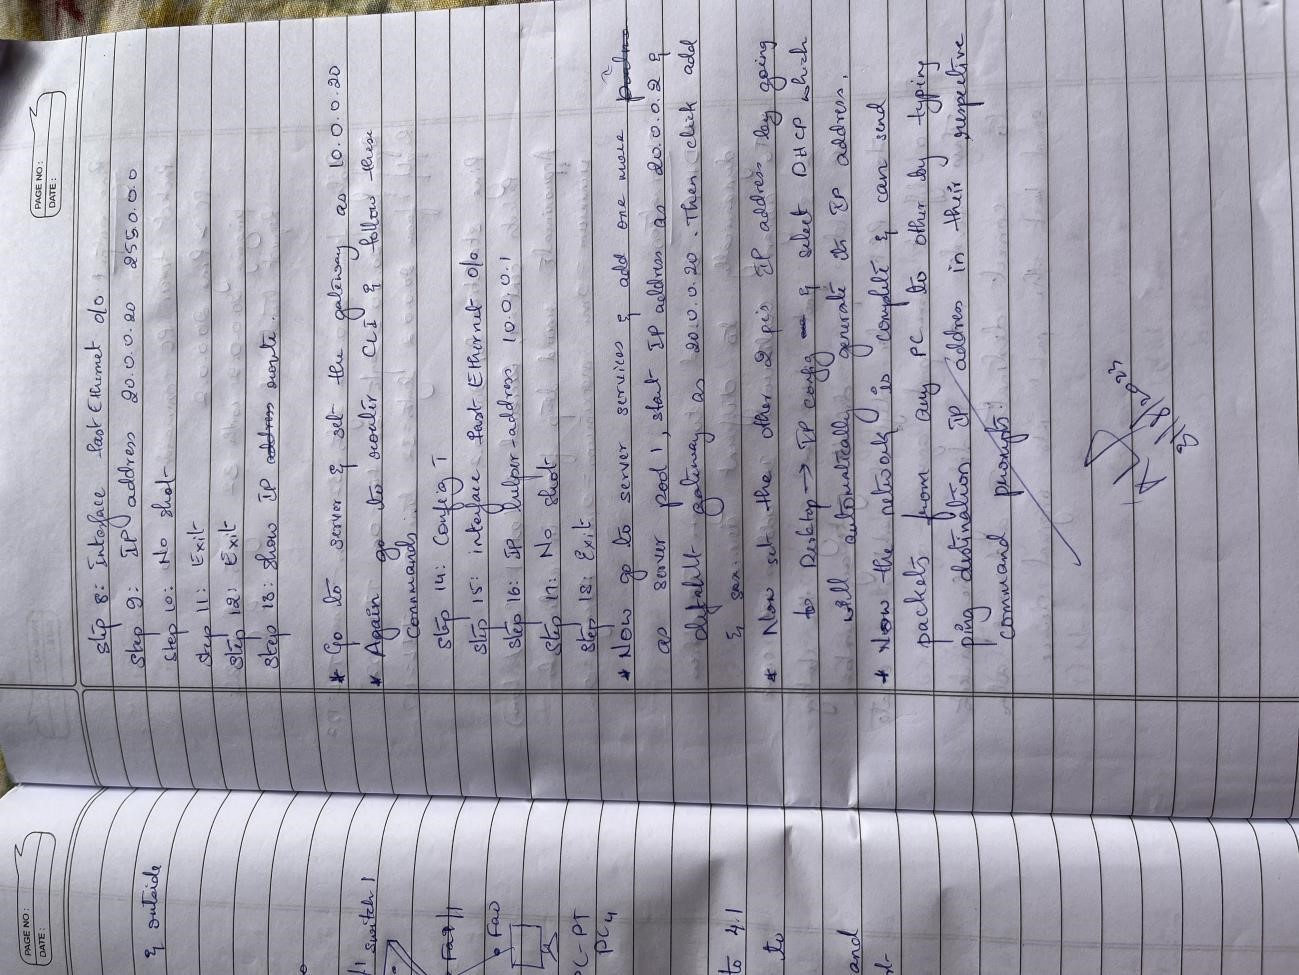 PAGE NO:
DATE:
Step 8: Interface fast Ethernet 0/0
Step 9: IP address 20.0.0.20 255.0.0.0
Step 10: No shot
Step 11: Exit
Step 12: Exit
Step 13: show IP address route.
* Go to server & set the gateway as 10.0.0.20
* Again go to router CLI & follow these
Commands.
Step 14: Config T
Step 15: interface fast Ethernet 0/0
Step 16: IP helper-address 10.0.0.1
Step 17: No shot
Step 18: Exit
* Now go to server services & add one more
as server pool 1, start IP address as 20.0.0.2 &
default gateway as 20.0.0.20. Then click add
&
* Now set the other 2 pc's IP address by going
to Desktop → IP config & select DHCP which
will automatically generate its IP address.
* Now the network is complete & can send
packets from any PC to other by typing
ping destination IP address in their respective
command prompt.
PAGE NO:
DATE:
& outside
switch 1
Fa1/1
Fa0
PC-PT
PC4
to 4.1
to
and